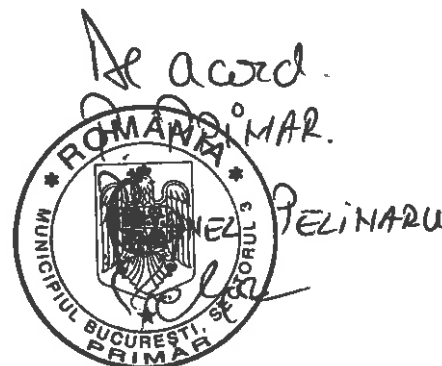 De acord.
PRIMAR.
PELINARU
* ROMÂNIA *
MUNICIPIUL BUCUREȘTI, SECTORUL 3
PRIMAR